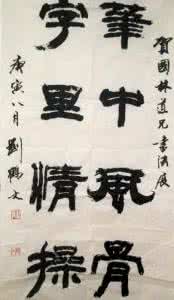 賀國林道兄書法展
筆中風骨
字里情操
庚寅八月劉鵬文